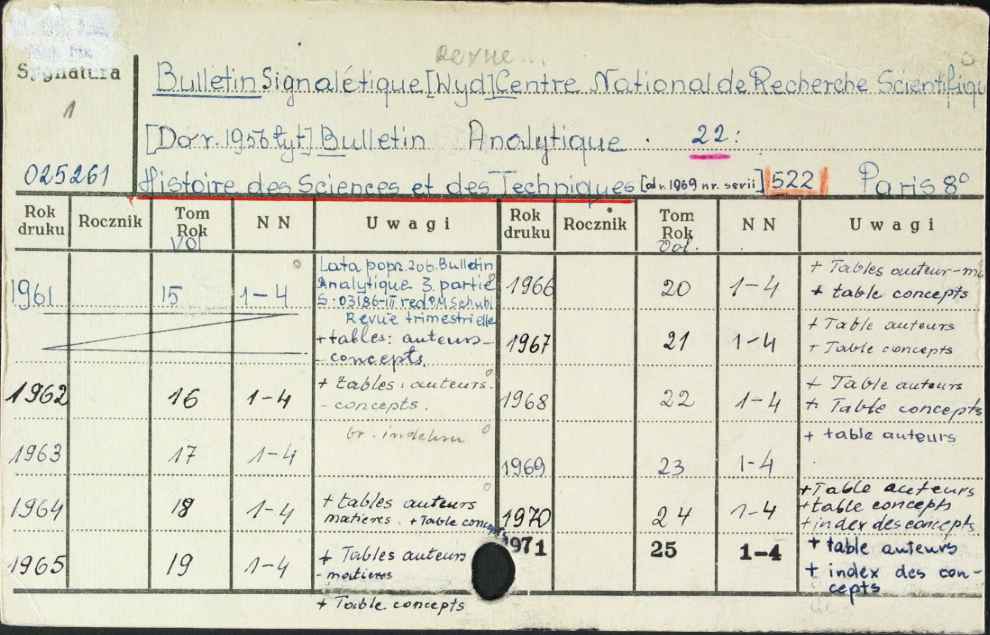 revue...
Sygnatura
1
025261
Bulletin Signalétique [Wyd] Centre National de Recherche Scientifiqu
[Do r. 1956 tyt] Bulletin Analytique . 22:
Histoire des Sciences et des Techniques [od r. 1969 nr. serii] 522 Paris 8°
Rok druku Rocznik Tom Rok Vol N N Uwagi Rok druku Rocznik Tom Rok Vol. N N Uwagi
1961 15 1-4
Lata popr. zob. Bulletin
Analytique 3. partie
S. 03186-III red. P.M. Schuhl
Revue trimestrielle
+ tables: auteurs-
- concepts.
1962 16 1-4 + tables: auteurs.
- concepts.
1963 17 1-4 br. indeksu
1964 18 1-4 + tables auteurs
matières. + Table concepts
1965 19 1-4 + Tables auteurs
- matières
+ Table concepts
1966 20 1-4 + Tables auteur-m
+ table concepts
1967 21 1-4 + Table auteurs
+ Table concepts
1968 22 1-4 + Table auteurs
+ Table concepts
1969 23 1-4 + table auteurs
1970 24 1-4 + Table auteurs
+ table concepts
+ index des concepts
1971 25 1-4 + table auteurs
+ index des con-
cepts